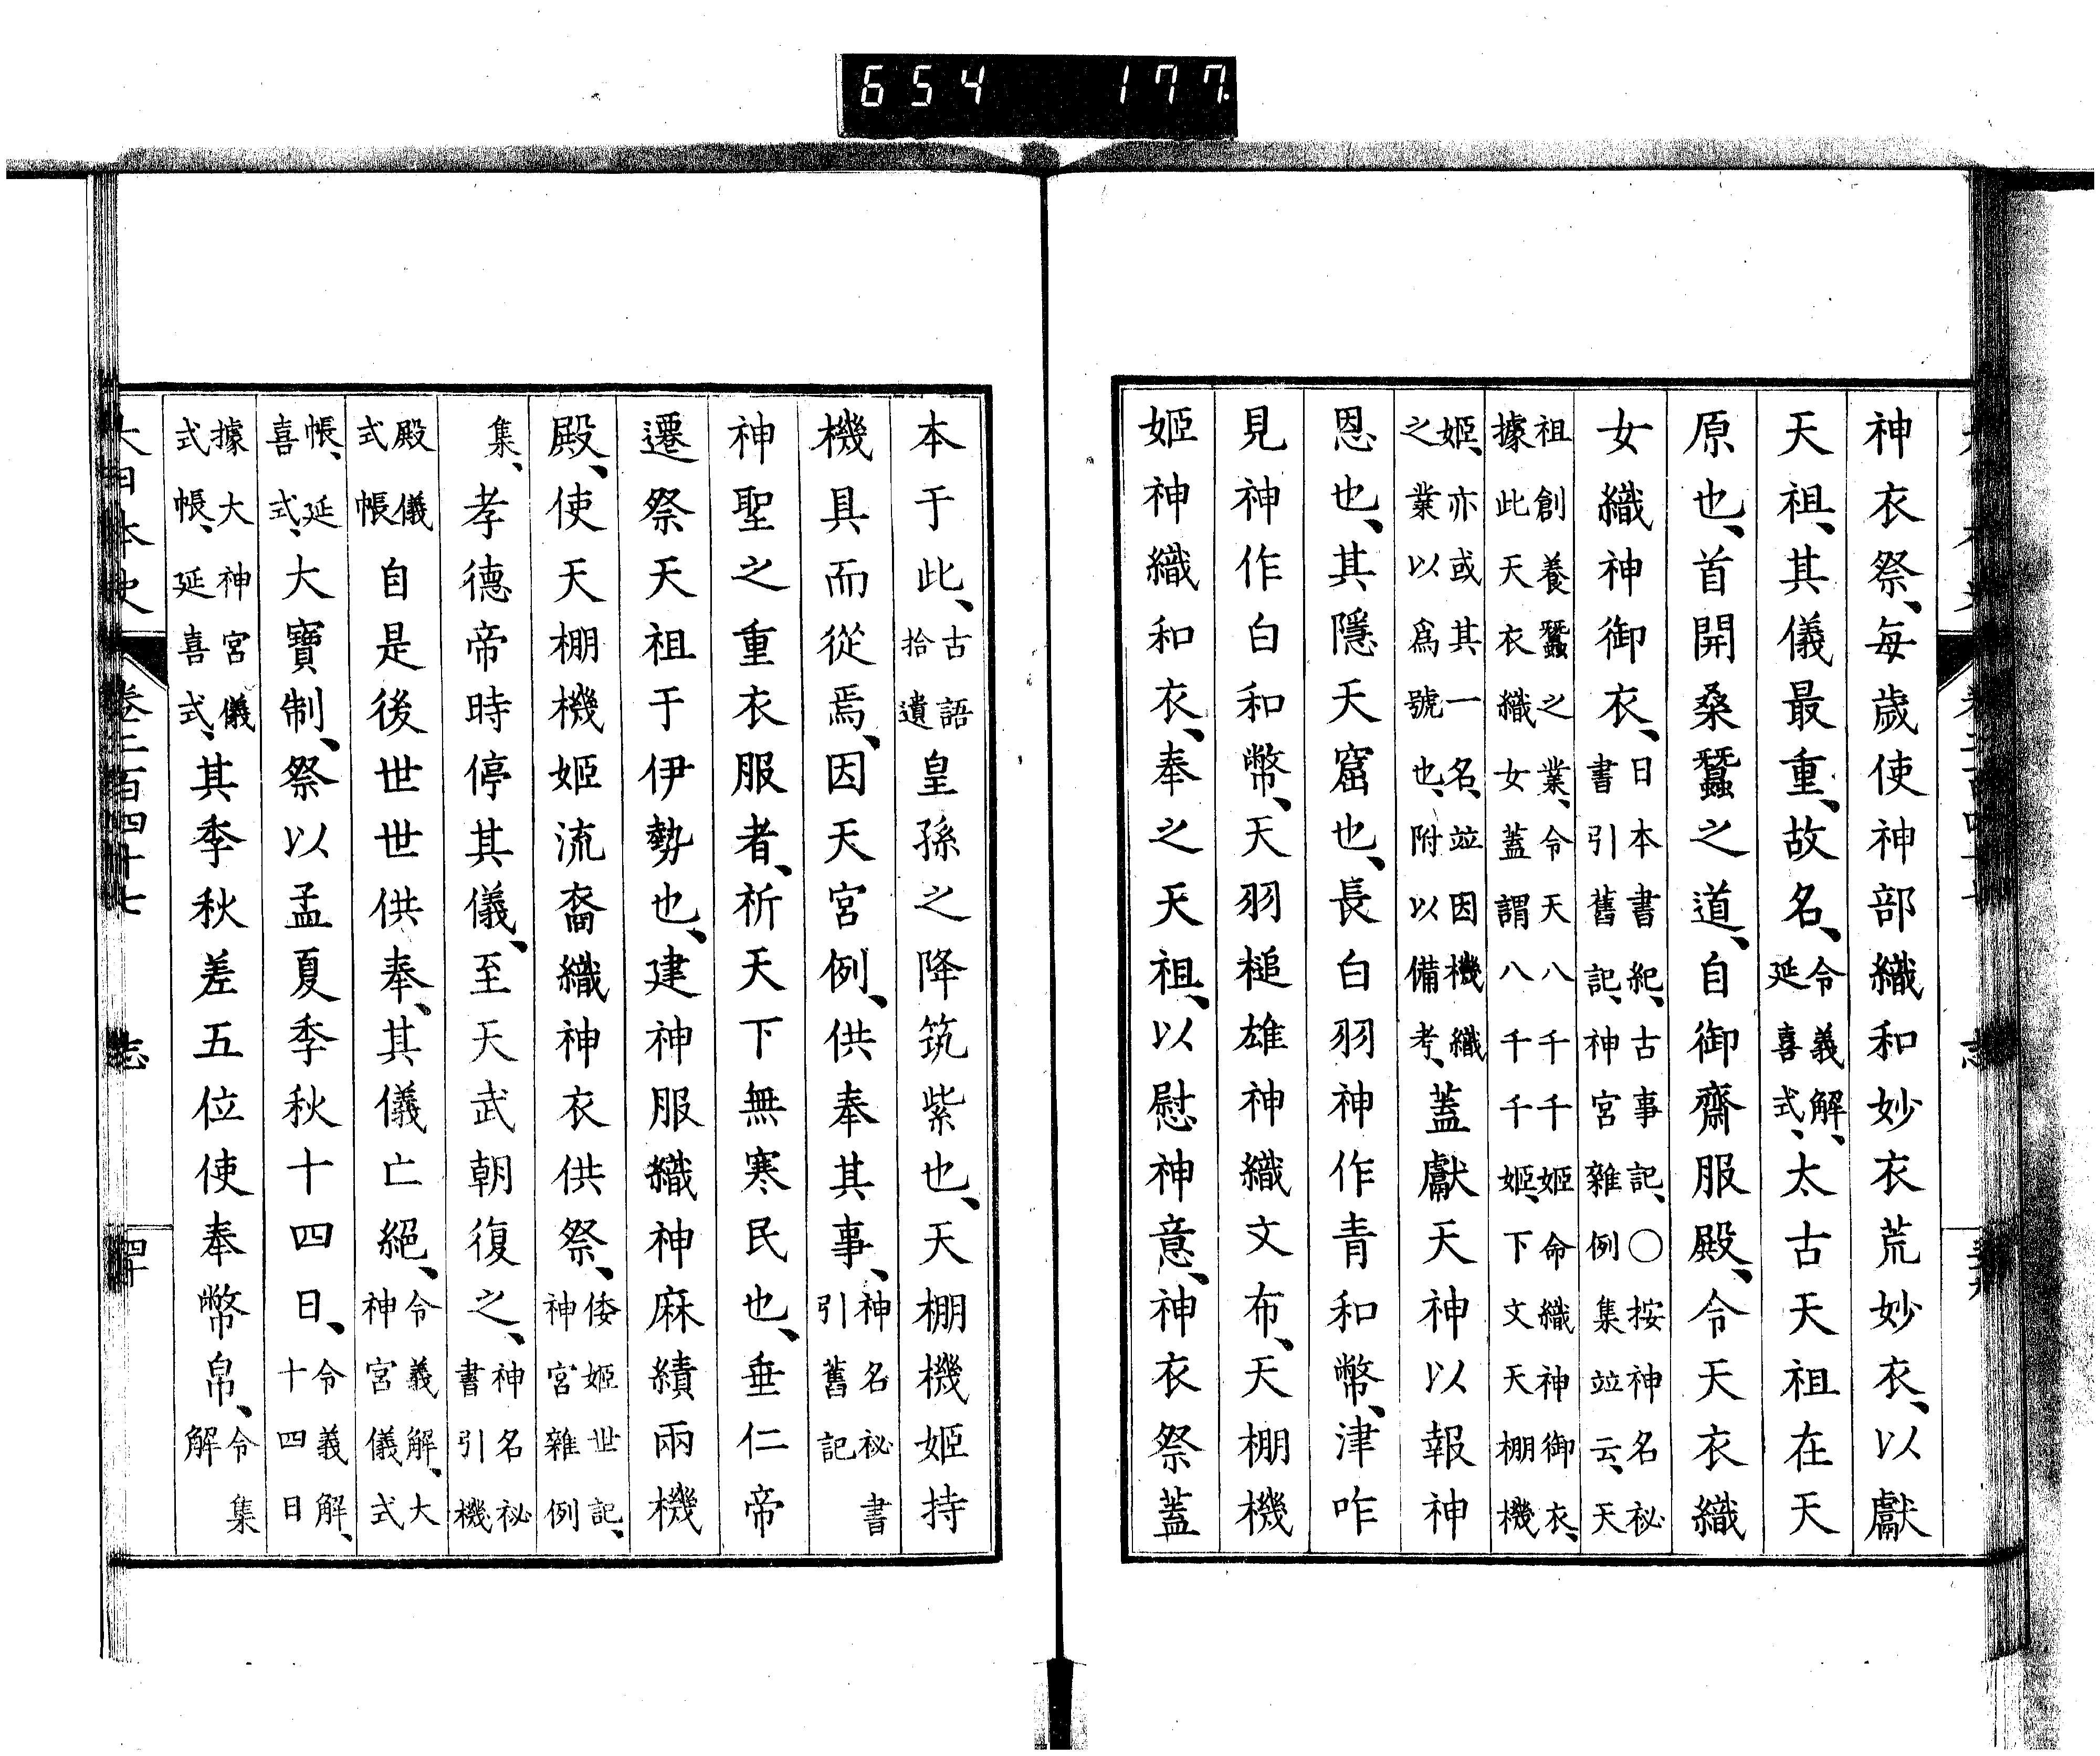 654 177
神衣祭、每歲使神部織和妙衣荒妙衣、以獻
天祖、其儀最重、故名、令義解、延喜式、太古天祖在天
原也、首開桑蠶之道、自御齋服殿、令天衣織
女織神御衣、日本書紀、古事記、○按神名祕書引舊記、神宮雜例集竝云、天
祖創養蠶之業、令天八千千姬命織神御衣、據此天衣織女蓋謂八千千姬、下文天棚機
姬、亦或其一名、竝因機織之業以爲號也、附以備考、蓋獻天神以報神
恩也、其隱天窟也、長白羽神作青和幣、津咋
見神作白和幣、天羽槌雄神織文布、天棚機
姬神織和衣、奉之天祖、以慰神意、神衣祭蓋
本于此、古語拾遺皇孫之降筑紫也、天棚機姬持
機具而從焉、因天宮例、供奉其事、神名祕書引舊記
神聖之重衣服者、祈天下無寒民也、垂仁帝
遷祭天祖于伊勢也、建神服織神麻績兩機
殿、使天棚機姬流裔織神衣供祭、倭姬世記、神宮雜例
集、孝德帝時停其儀、至天武朝復之、神名祕書引機
殿儀式帳自是後世世供奉、其儀亡絕、令義解、大神宮儀式
帳、延喜式、大寶制、祭以孟夏季秋十四日、令義解、十四日
據大神宮儀式帳、延喜式、其季秋差五位使奉幣帛、令集解
大日本史 卷二百四十七 志 四十